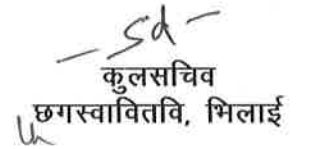 -sd-
कुलसचिव
छगस्वावितवि, भिलाई